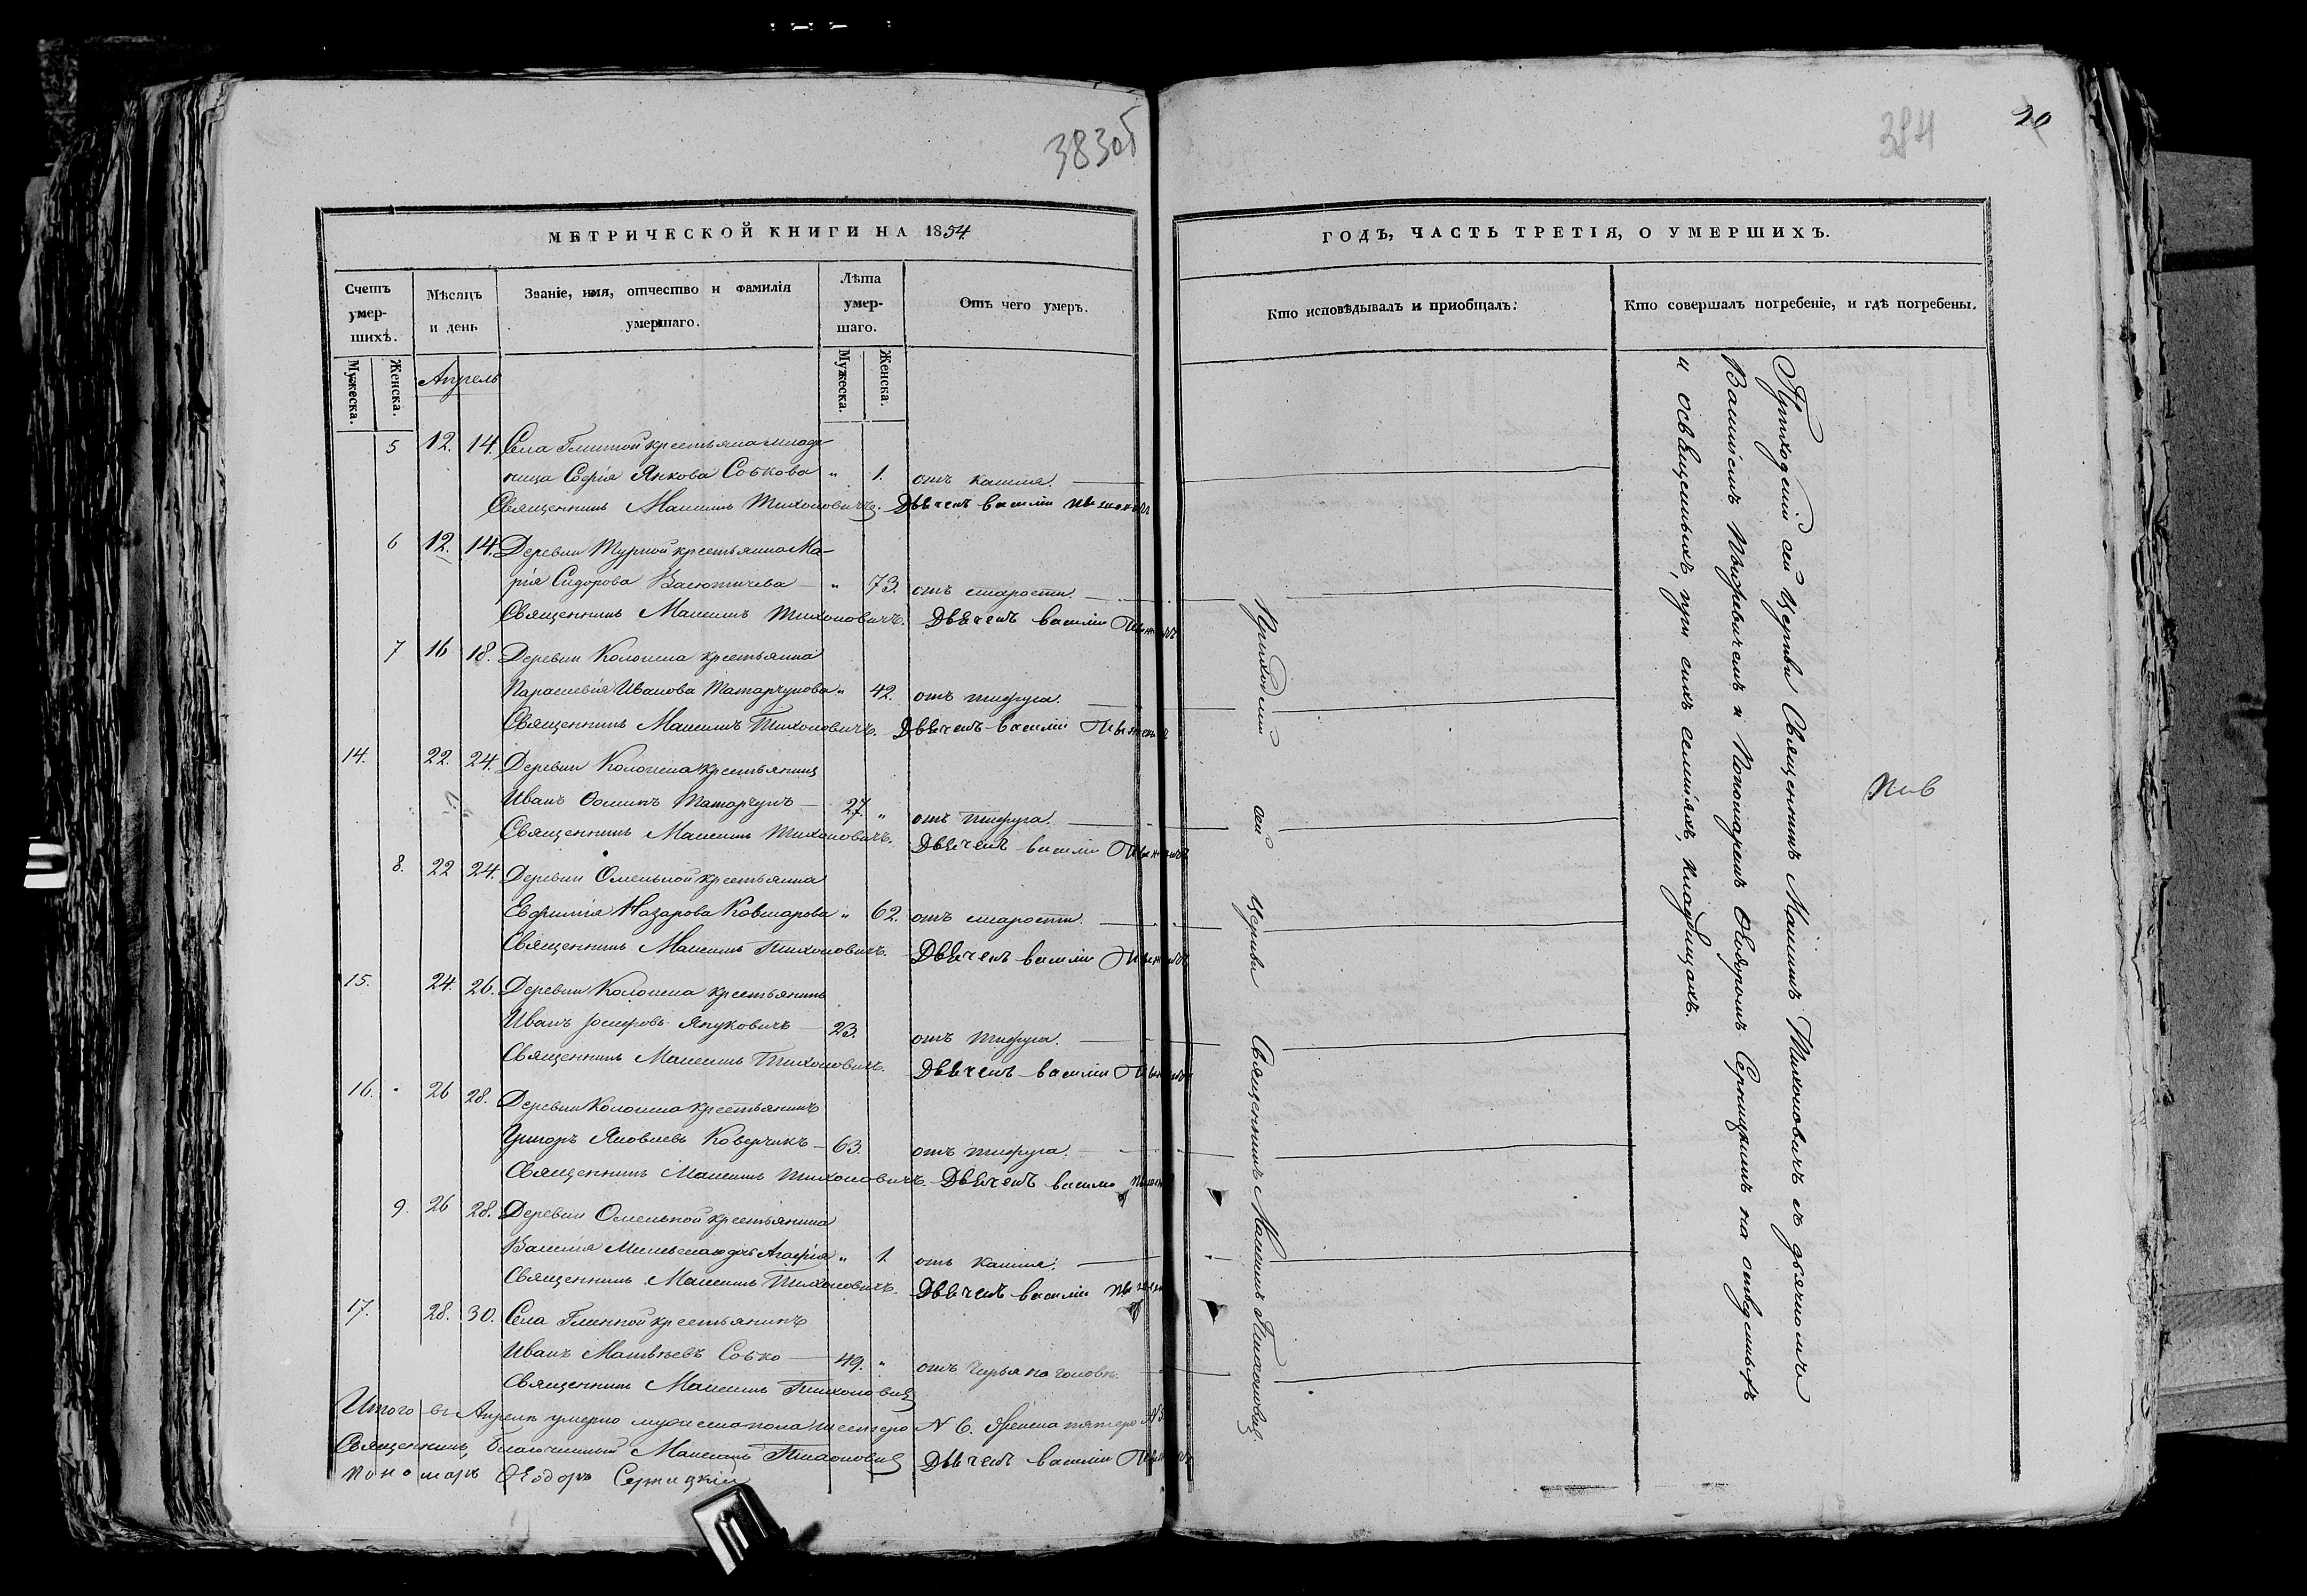 383об
МЕТРИЧЕСКОЙ КНИГИ НА 1854
Счетъ умер- шихъ.
Мѣсяцъ и день
Званіе, имя, отчество и фамилія умершаго.
Лѣта умер- шаго.
Отъ чего умеръ.
Мужеска.
Женска.
Апрель
Мужеска.
Женска.
5 12. 14. Села Глинной крестьянка младе-
ница Софія Янкова Собкова " 1. отъ кашля.
Священникъ Максимъ Тихоновичъ. Дьячекъ Василій
6 12. 14. Деревни Турной крестьянка Ма-
рія Сидорова Васютичева " 73. отъ старости.
Священникъ Максимъ Тихоновичъ. Дьячекъ Василій
7 16 18. Деревни Колонска крестьянка
Параскевія Иванова Татарчукова " 42. отъ тифуса.
Священникъ Максимъ Тихоновичъ. Дьячекъ Василій
14. 22. 24. Деревни Колонска крестьянинъ
Иванъ Ѳоминъ Татарчукъ 27. " отъ тифуса.
Священникъ Максимъ Тихоновичъ. Дьячекъ Василій
8. 22 24. Деревни Омельной крестьянка
Евфимія Назарова Ковшарова " 62. отъ старости.
Священникъ Максимъ Тихоновичъ. Дьячекъ Василій
15. 24. 26. Деревни Колонска крестьянинъ
Иванъ Іосифовъ Януковичъ 23. отъ тифуса.
Священникъ Максимъ Тихоновичъ. Дьячекъ Василій
16. 26 28. Деревни Колонска крестьянинъ
Григоръ Яковлевъ Коверчикъ 63. отъ тифуса.
Священникъ Максимъ Тихоновичъ. Дьячекъ Василій
9. 26 28. Деревни Омельной крестьянина
Василія дочь Агафія " 1. отъ кашля.
Священникъ Максимъ Тихоновичъ. Дьячекъ Василій
17. 28. 30. Села Глинной крестьянинъ
Иванъ Матвѣевъ Собко 49. " отъ чирья на головѣ.
Священникъ Максимъ Тихоновичъ
Итого въ Апрелѣ умерло мужеска пола шестеро N 6. Женска пятеро N 5.
Священникъ, Благочинный Максимъ Тихоновичъ Дьячекъ Василій
Пономарь Ѳеодоръ Серницкій
384
20
ГОДЪ, ЧАСТЬ ТРЕТІЯ, О УМЕРШИХЪ.
Кто исповѣдывалъ и пріобщалъ.
Кто совершалъ погребеніе, и гдѣ погребены.
Приходскій сей Церкви Священникъ Максимъ Тихоновичъ.
Приходскій сей Церкви Священникъ Максимъ Тихоновичъ съ дьячкомъ
Василіемъ и Пономаремъ Ѳеодоромъ Серницкимъ на отведенныхъ
и освященныхъ, при сихъ селеніяхъ, кладбищахъ.